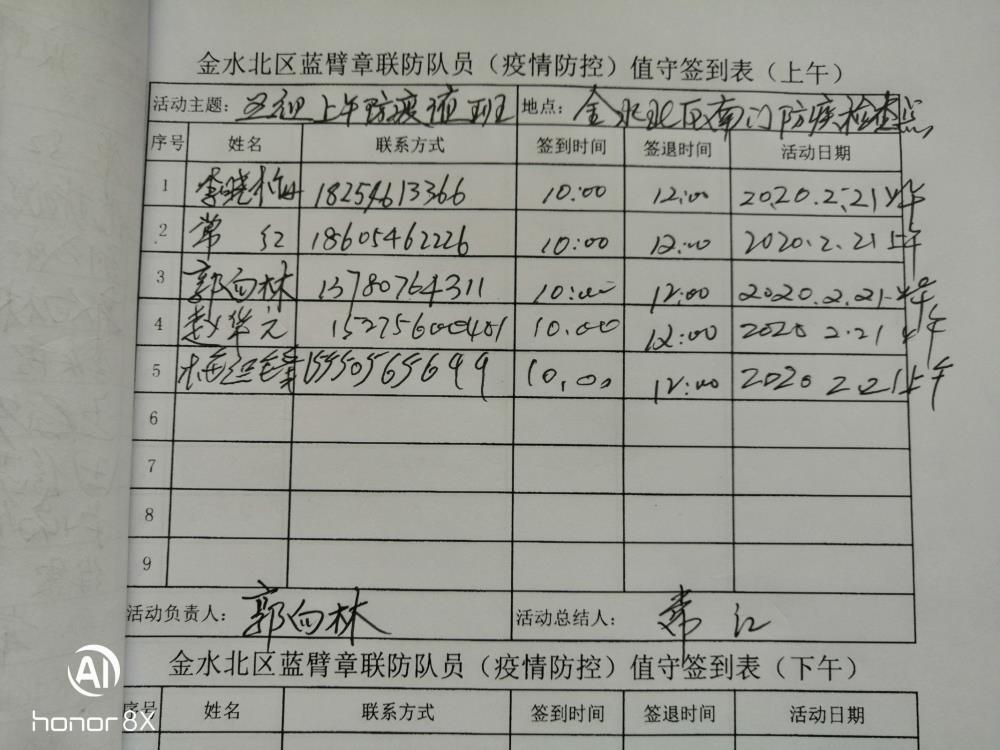 金水北区蓝臂章联防队员（疫情防控）值守签到表（上午）
活动主题：上午防疫值班 地点：金水北区南门防疫检查点
序号 姓名 联系方式 签到时间 签退时间 活动日期
1 李晓梅 18254613366 10:00 12:00 2020.2.21上午
2 常红 18605462226 10:00 12:00 2020.2.21上午
3 郭向林 13780764311 10:00 12:00 2020.2.21上午
4 赵华元 15275600401 10:00 12:00 2020 2.21上午
5 15950565699 10:00 12:00 2020 2.21上午
6
7
8
9
活动负责人：郭向林 活动总结人：常红
金水北区蓝臂章联防队员（疫情防控）值守签到表（下午）
序号 姓名 联系方式 签到时间 签退时间 活动日期
AI
honor 8X